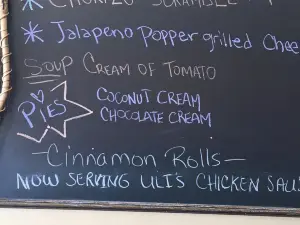 CHORIZO SCRAMBLE
* Jalapeno Popper grilled Chee
SOUP CREAM OF TOMATO
PiES COCONUT CREAM
CHOCOLATE CREAM
—Cinnamon Rolls—
NOW SERVING ULI'S CHICKEN SAUS